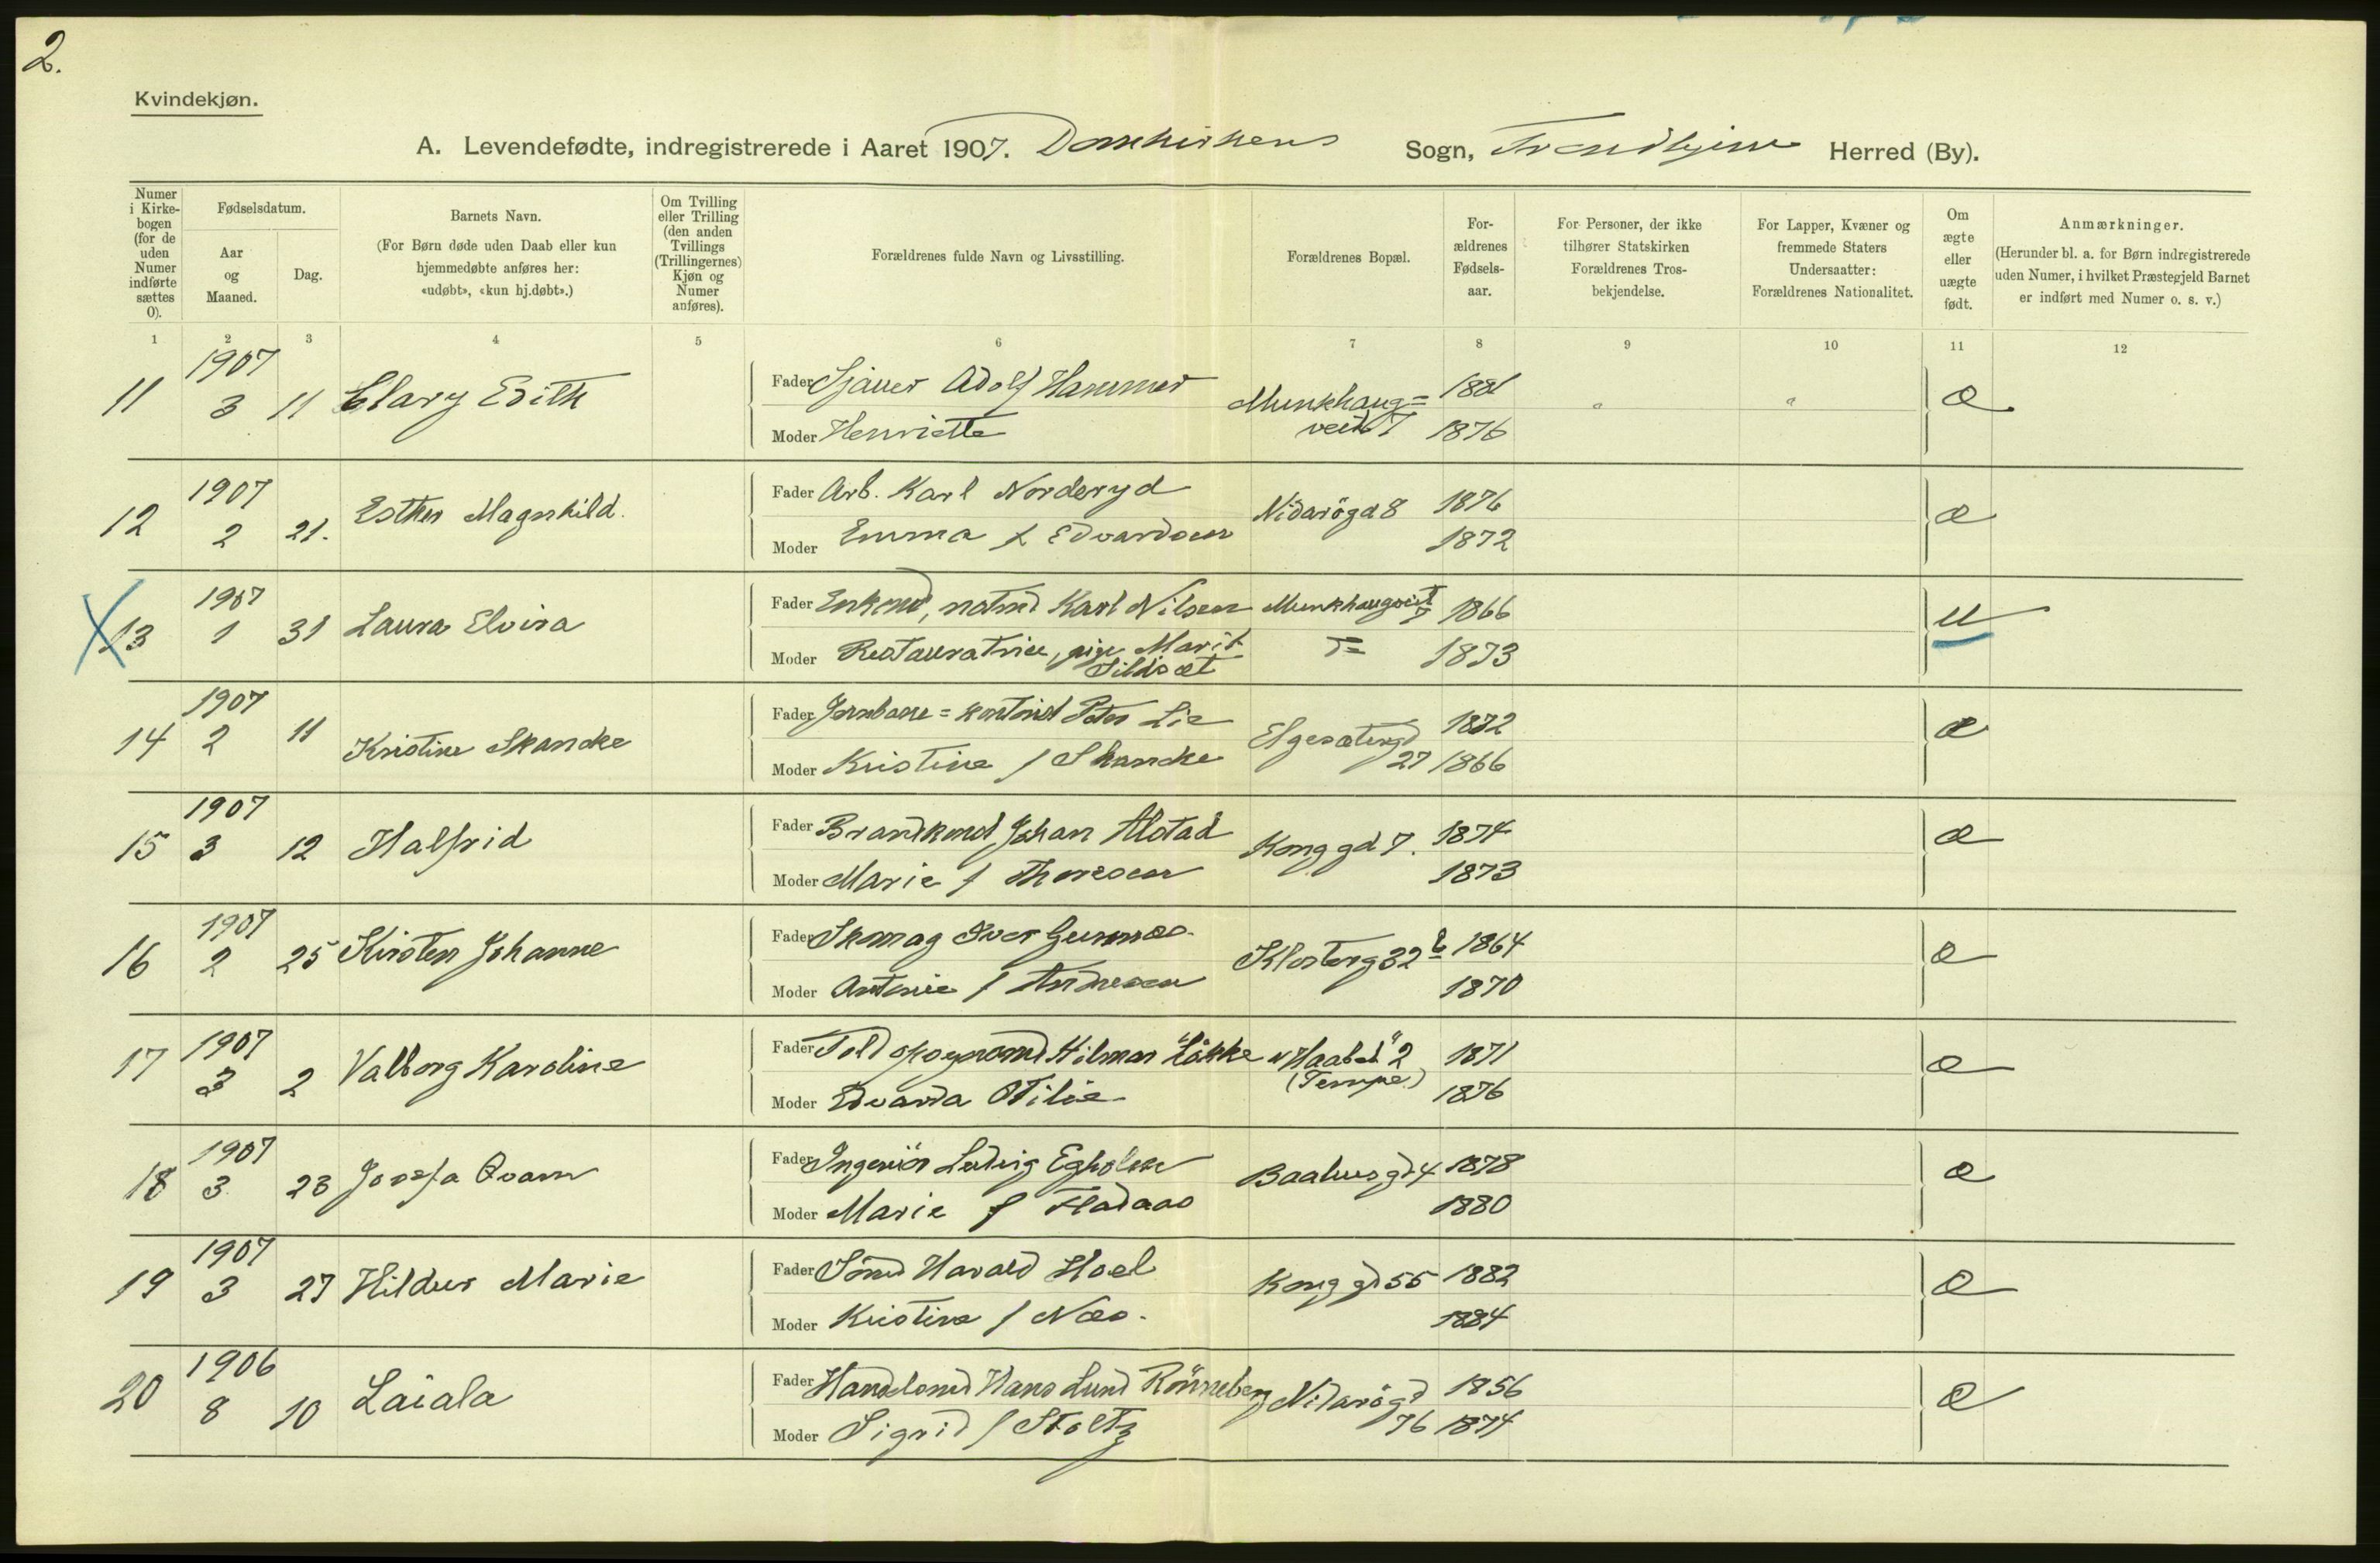 2.
Kvindekjøn.
A. Levendefødte, indregistrerede i Aaret 1907. Domkirkens Sogn, Trondhjem Herred (By).
Numer i Kirke-bogen (for de uden Numer indførte sættes 0).
Fødselsdatum.
Aar og Maaned.
Dag.
Barnets Navn.
(For Børn døde uden Daab eller kun hjemmedøbte anføres her: «udøbt», «kun hj.døbt».)
Om Tvilling eller Trilling (den anden Tvillings (Trillingernes) Kjøn og Numer anføres).
Forældrenes fulde Navn og Livsstilling.
Forældrenes Bopæl.
For-ældrenes Fødsels-aar.
For Personer, der ikke tilhører Statskirken Forældrenes Tros-bekjendelse.
For Lapper, Kvæner og fremmede Staters Undersaatter: Forældrenes Nationalitet.
Om ægte eller uægte født.
Anmærkninger.
(Herunder bl. a. for Børn indregistrerede uden Numer, i hvilket Præstegjeld Barnet er indført med Numer o. s. v.)
1 2 3 4 5 6 7 8 9 10 11 12
11 1907 3 11 Clary Edith Fader Sjauer Adolf Hammer Munkhaug= 1881 " " æ
Moder Henriette veit 7 1876
12 1907 2 21. Esther Magnhild. Fader Arb. Karl Norderyd Nidarögd 8 1876 æ
Moder Emma f Edvardsen 1872
13 1907 1 31 Laura Elvira Fader Enkemd, natmd Karl Nilsen Munkhaugveit 7 1866 u
Moder Restauratrice, pige Marit Sildsæt 1873
14 1907 2 11 Kristine Skancke Fader Jernbane=kontorist Peter Lie Elgesætergd 1872 æ
Moder Kristine f Skancke 27 1866
15 1907 3 12 Halfrid Fader Brandkonst Johan Alstad Konggd 7. 1874 æ
Moder Marie f Thoresen 1873
16 1907 2 25 Kirsten Johanne Fader Skomag Iver GunnæsKlosterg 32 b 1864 æ
Moder Antonie f Andresen 1870
17 1907 3 2 Valborg Karoline Fader Toldopsynsmd Hilmar Løkke "Haabet" 2 1871 æ
Moder Edvarda Otilie (Tempe) 1876
18 1907 3 23 Josefa Qvam Fader Ingeniör Ludvig Egholm Baahusgd 4 1878 æ
Moder Marie f Fladaas 1880
19 1907 3 27 Hildur Marie Fader Sømd Harald Hoel Konggd 55 1882 æ
Moder Kristine f Næs. 1884
20 1906 8 10 Laiala Fader Handelsmd Hans Lund Rönneberg Nidarögd 1856 æ
Moder Sigrid f Stoltz 76 1874